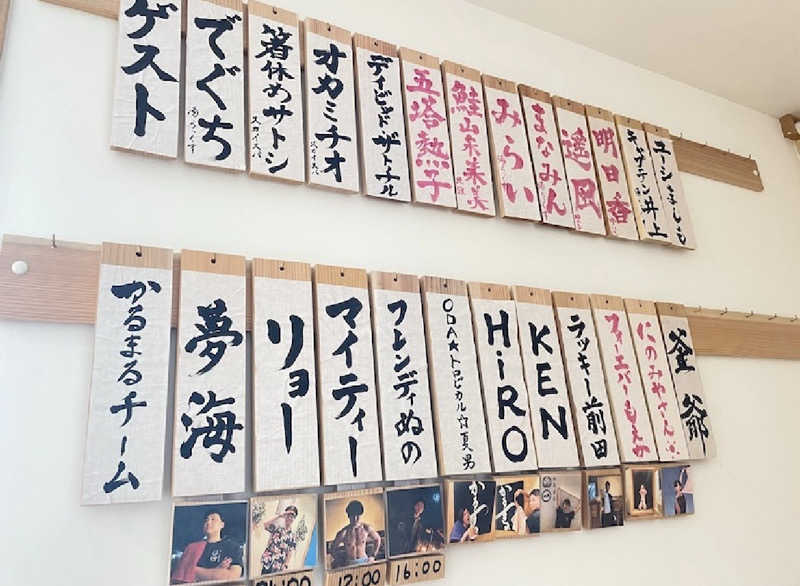 ゲスト
でぐち
箸休めサトシ
オカミチオ
デイビッド・ザ・トナル
五塔熱子
鮭山未菜美
みらい
まなみん
遥凪
明日香
キャプテン井上
ユージましも
かるまるチーム
夢海
リョー
マイティー
フレンディぬの
ODA★トロピカル☆夏男
HiRO
KEN
ラッキー前田
フィーバーもえか
にのみやさん
釜爺
12:00
16:00